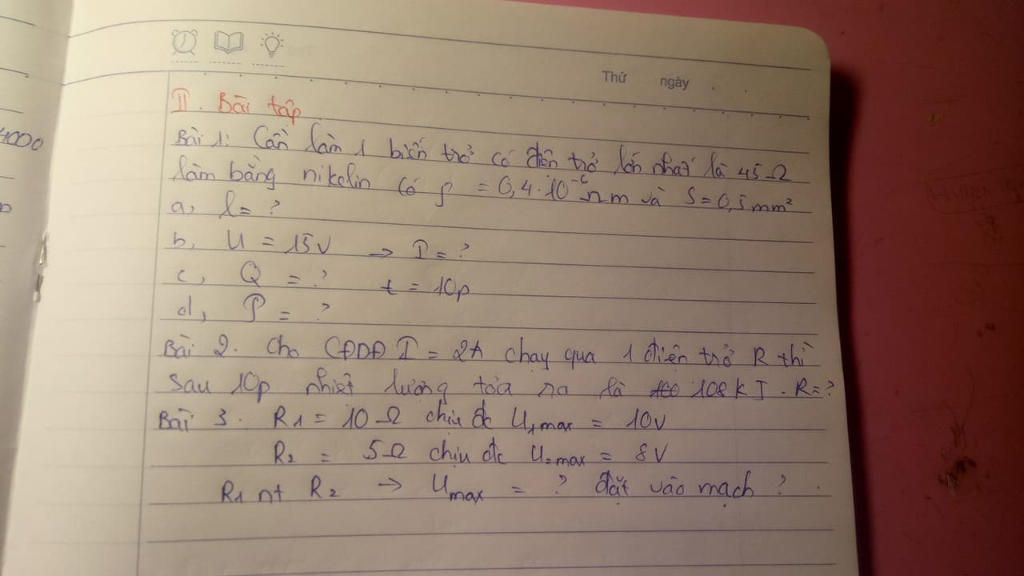 4000
Thứ ngày
II. Bài tập
Bài 1: Cần làm 1 biến trở có điện trở lớn nhất là 45 Ω
làm bằng nikelin có ρ = 0,4.10⁻⁶ Ωm và S = 0,5 mm²
a, l = ?
b, U = 15V → I = ?
c, Q = ? t = 10p
d, P = ?
Bài 2. Cho CĐDĐ I = 2A chạy qua 1 điện trở R thì
sau 10p nhiệt lượng tỏa ra là 108 kJ. R = ?
Bài 3. R1 = 10 Ω chịu đc U1max = 10V
R2 = 5Ω chịu đc U2max = 8V
R1 nt R2 → Umax = ? đặt vào mạch ?